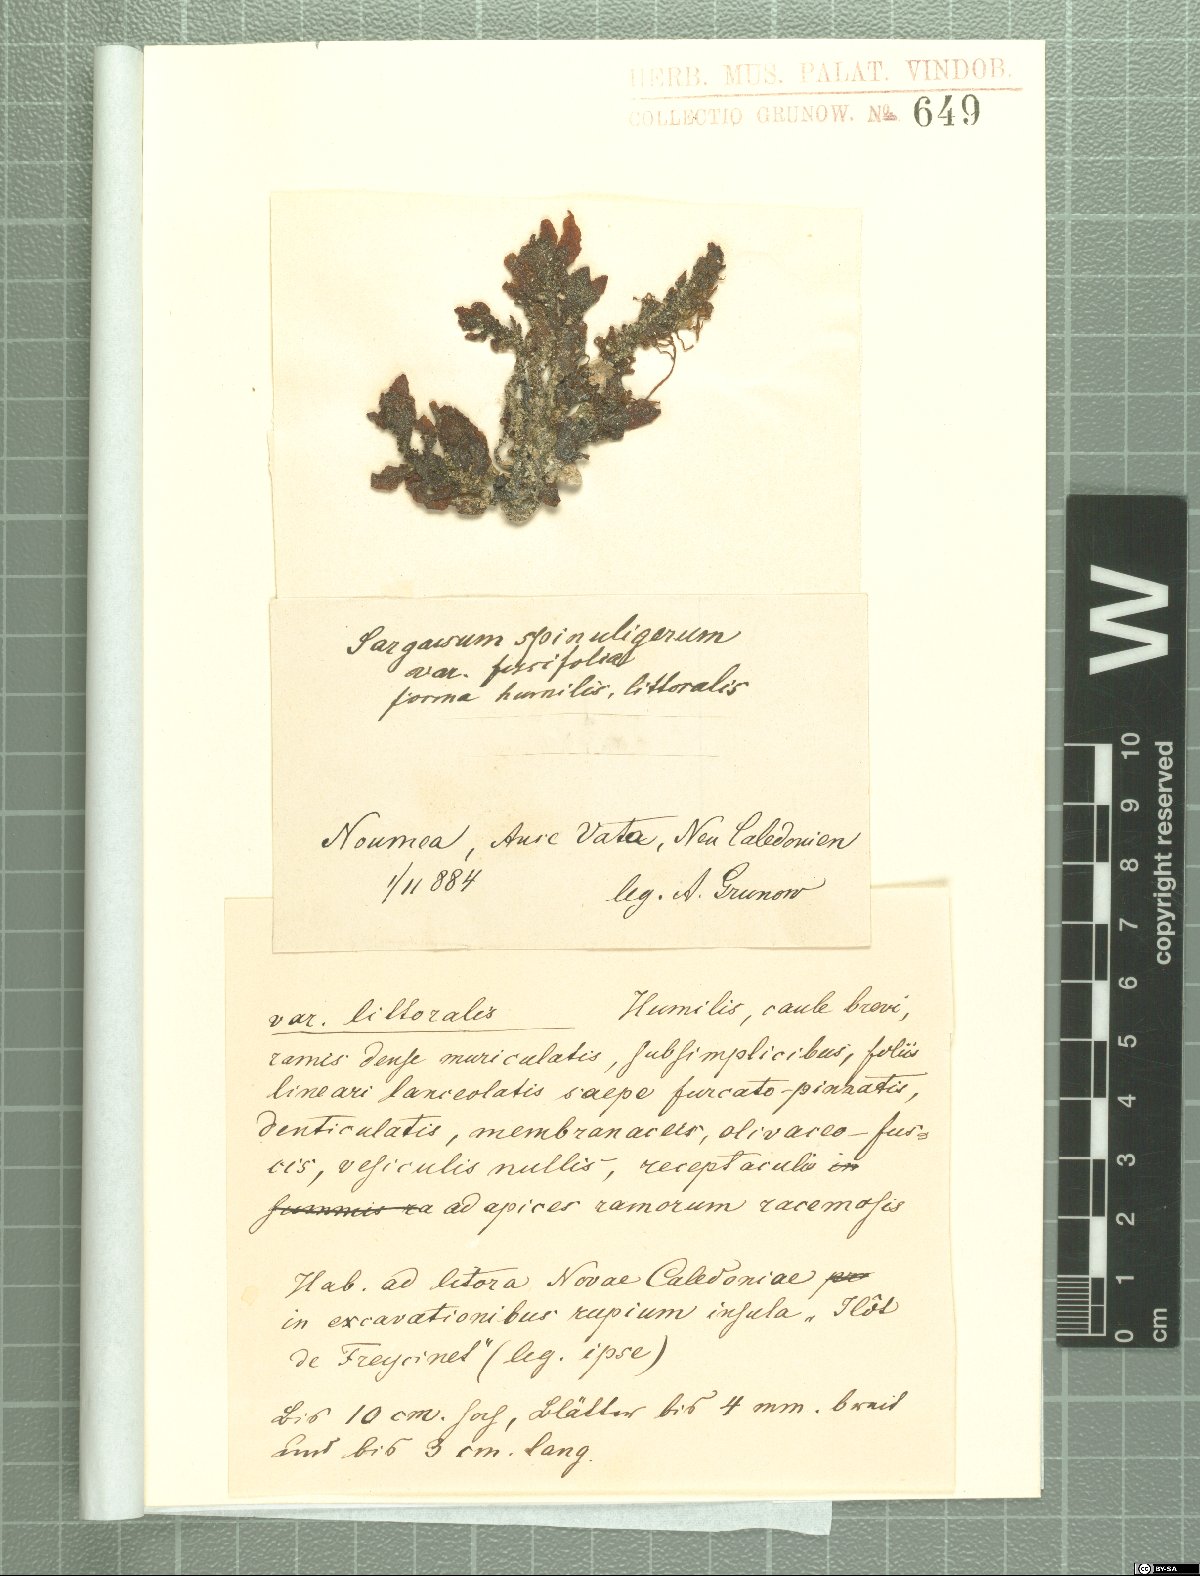 HERB. MUS. PALAT. VINDOB.
COLLECTIO GRUNOW. No. 649
Sargassum spinuligerum
var. fuscifolia
forma humilis, littoralis
Noumea, Anse Vata, Neu Caledonien
1/11 884
leg. A. Grunow
var. littoralis Humilis, caule brevi,
ramis dense muriculatis, subsimplicibus, foliis
lineari lanceolatis saepe furcato-pinnatis,
denticulatis, membranaceis, olivaceo-fus=
cis, vesiculis nullis, receptaculis in
summis ra ad apices ramorum racemosis
Hab. ad litora Novae Caledoniae
in excavationibus rupium insula „Ilôt
de Freycinet" (leg. ipse)
Bis 10 cm. hoch, Blätter bis 4 mm. breit
und bis 3 cm. lang.
W
10
9
8
7
6
5
4
3
2
1
0
cm
copyright reserved
cc BY-SA